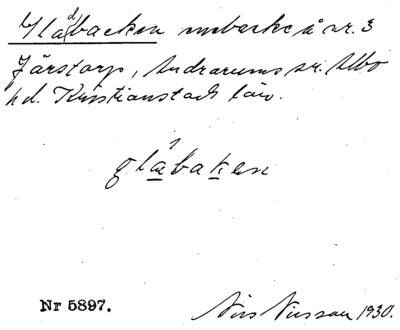 Gladbacken urbacke å nr. 3
Järstorp, Andrarums sn. Albo
hd. Kristianstads län.
glåbaken
Nr 5897.
Nils Nilsson 1930.